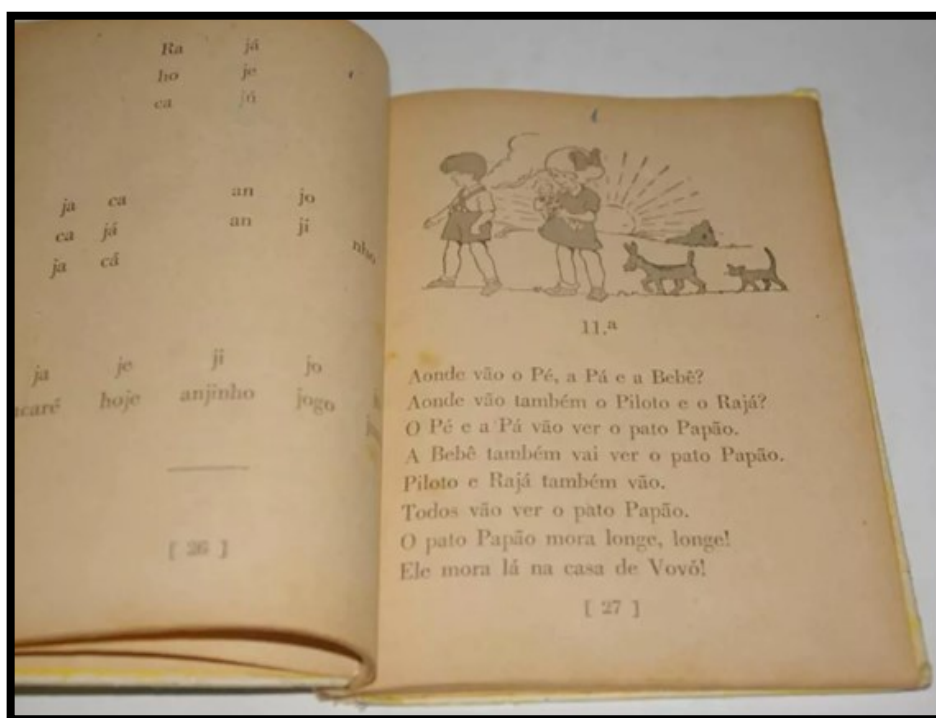 Ra já
ho je
ca já
ja ca an jo
ca já an ji nho
ja cá
ja je ji jo
hoje anjinho jogo
[ 26 ]
11.ª
Aonde vão o Pé, a Pá e a Bebê?
Aonde vão também o Piloto e o Rajá?
O Pé e a Pá vão ver o pato Papão.
A Bebê também vai ver o pato Papão.
Piloto e Rajá também vão.
Todos vão ver o pato Papão.
O pato Papão mora longe, longe!
Ele mora lá na casa de Vovó!
[ 27 ]